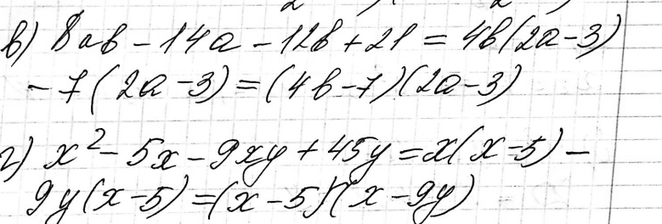 в) 8ab - 14a - 12b + 21 = 4b(2a-3)
- 7(2a-3) = (4b-7)(2a-3)
г) x² - 5x - 9xy + 45y = x(x-5) -
9y(x-5) = (x-5)(x-9y)